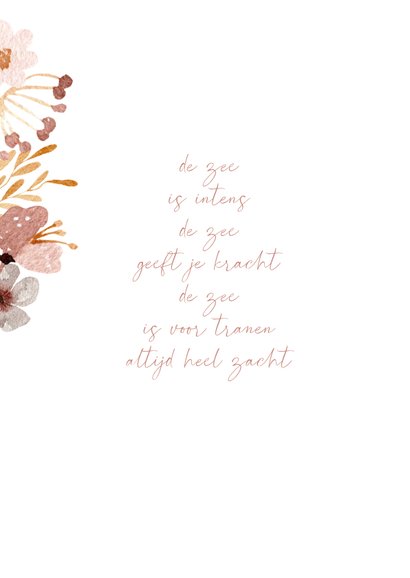 de zee
is intens
de zee
geeft je kracht
de zee
is voor tranen
altijd heel zacht